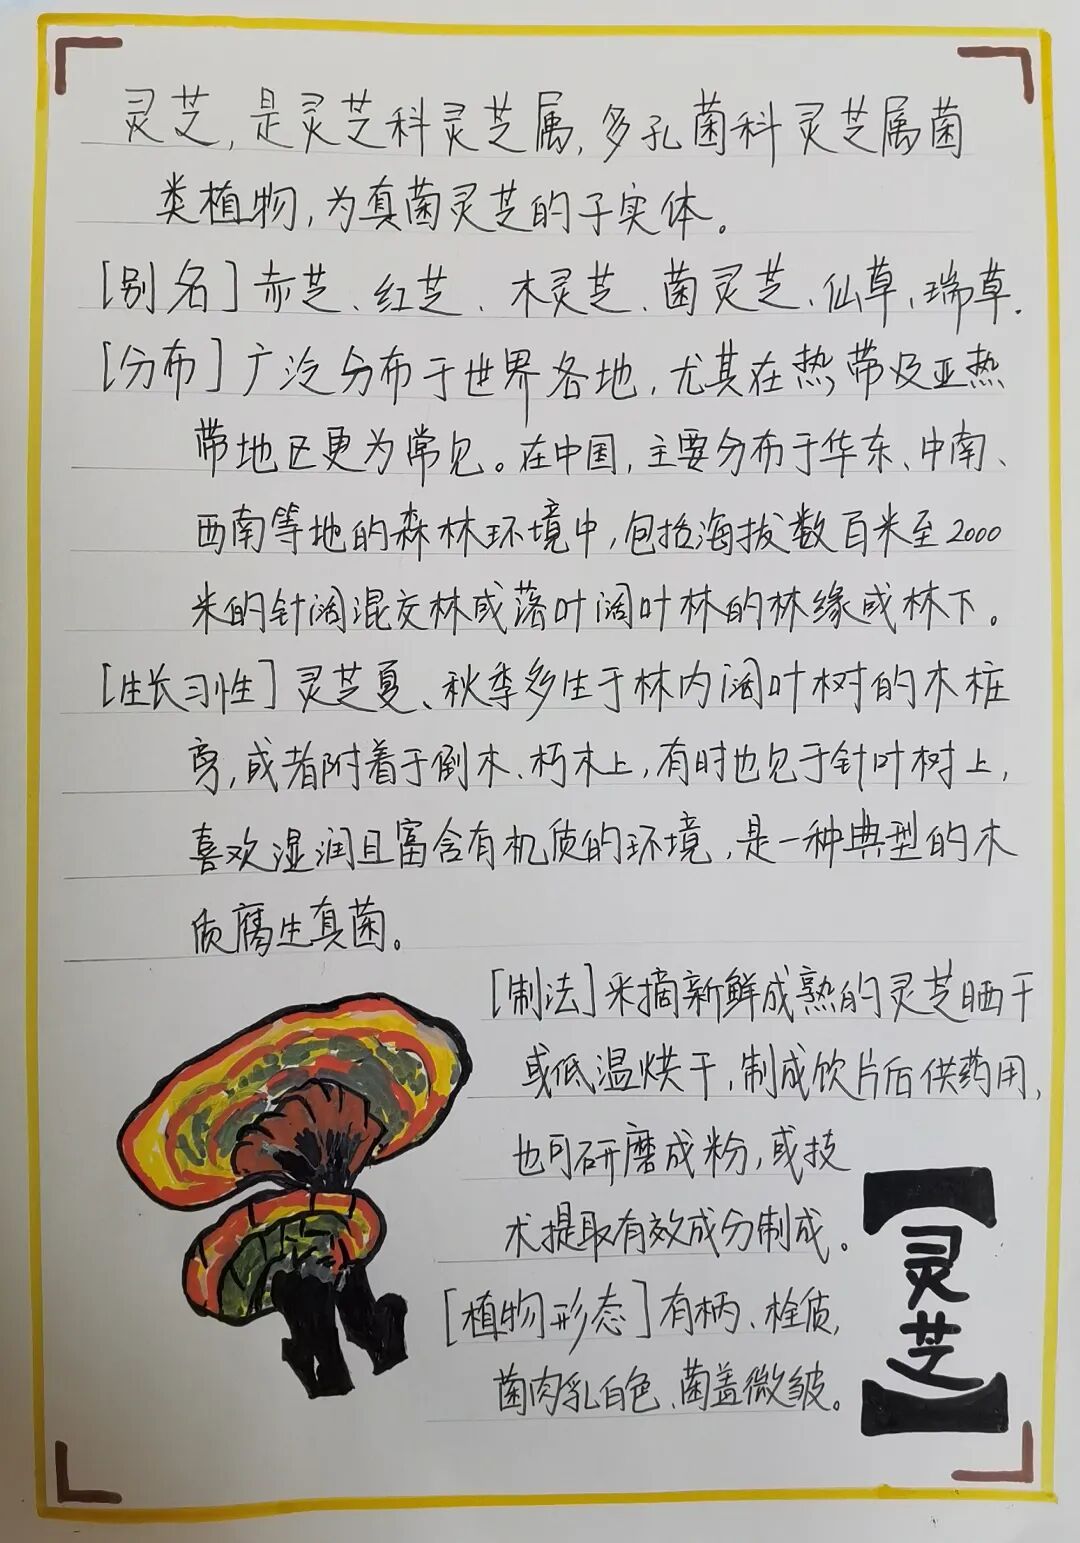 灵芝,是灵芝科灵芝属,多孔菌科灵芝属菌
类植物,为真菌灵芝的子实体。
[别名]赤芝、红芝、木灵芝、菌灵芝、仙草、瑞草.
[分布]广泛分布于世界各地,尤其在热带及亚热
带地区更为常见。在中国,主要分布于华东、中南、
西南等地的森林环境中,包括海拔数百米至2000
米的针阔混交林或落叶阔叶林的林缘或林下。
[生长习性]灵芝夏、秋季多生于林内阔叶树的木桩
旁,或者附着于倒木、朽木上,有时也见于针叶树上,
喜欢湿润且富含有机质的环境,是一种典型的木
质腐生真菌。
[制法]采摘新鲜成熟的灵芝晒干
或低温烘干,制成饮片后供药用,
也可研磨成粉,或技
术提取有效成分制成。
[植物形态]有柄、栓质,
菌肉乳白色、菌盖微皱。
【灵芝】